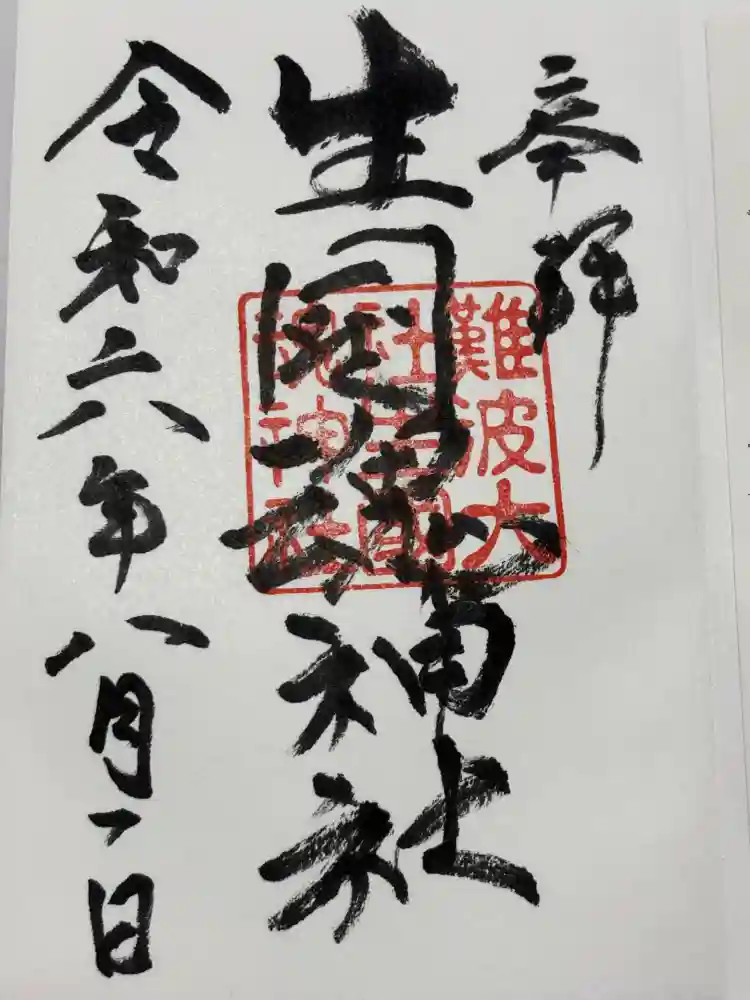 奉拝
生國魂神社
難波大
社生國
魂神社
令和六年八月一日